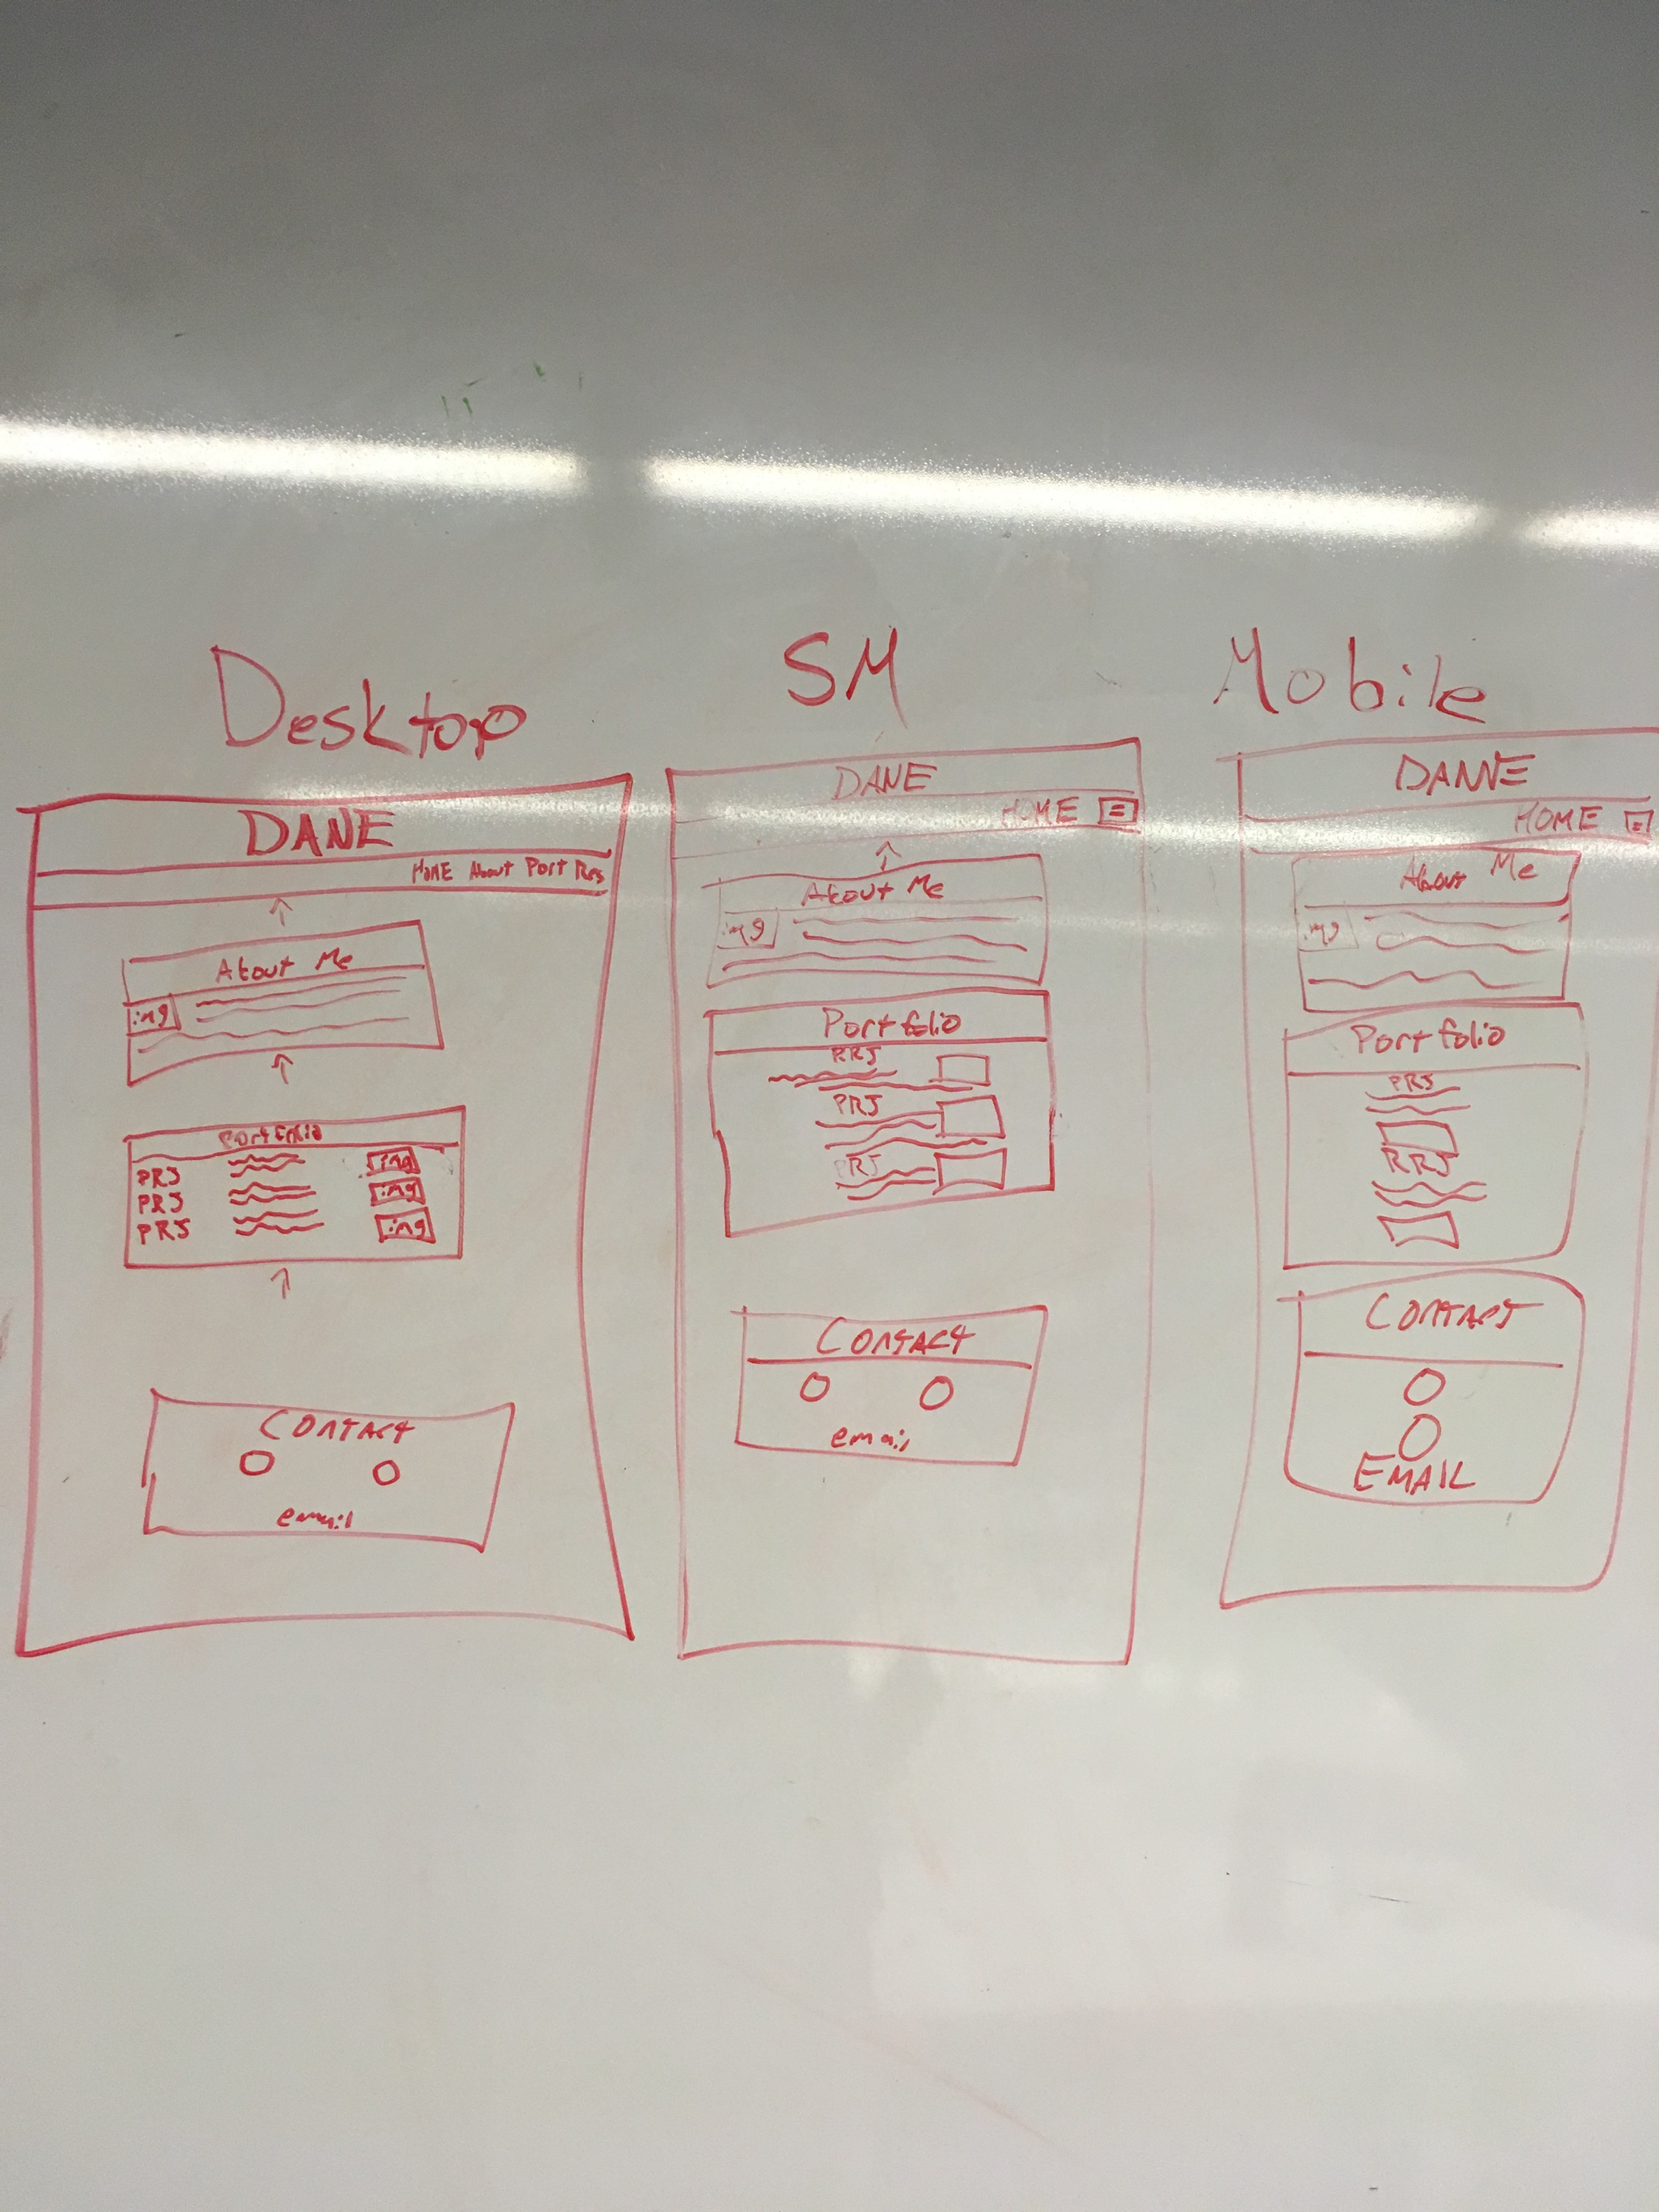 Desktop
DANE
HOME About Port Res
About Me
img
Portfolio
PRJ
img
PRJ
img
PRJ
img
Contact
email
SM
DANE
HOME
About Me
img
Portfolio
PRJ
PRJ
PRJ
Contact
email
Mobile
DANE
HOME
About Me
img
Portfolio
PRJ
PRJ
Contact
EMAIL